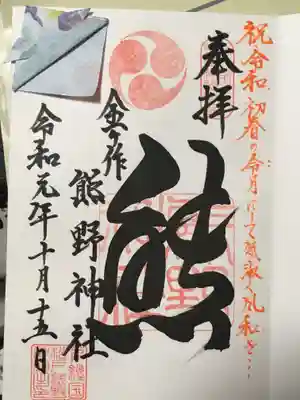 祝令和 初春の令月にして気淑く風和ぎ…
奉拝
熊
金ケ作
熊野神社
令和元年十月十五日